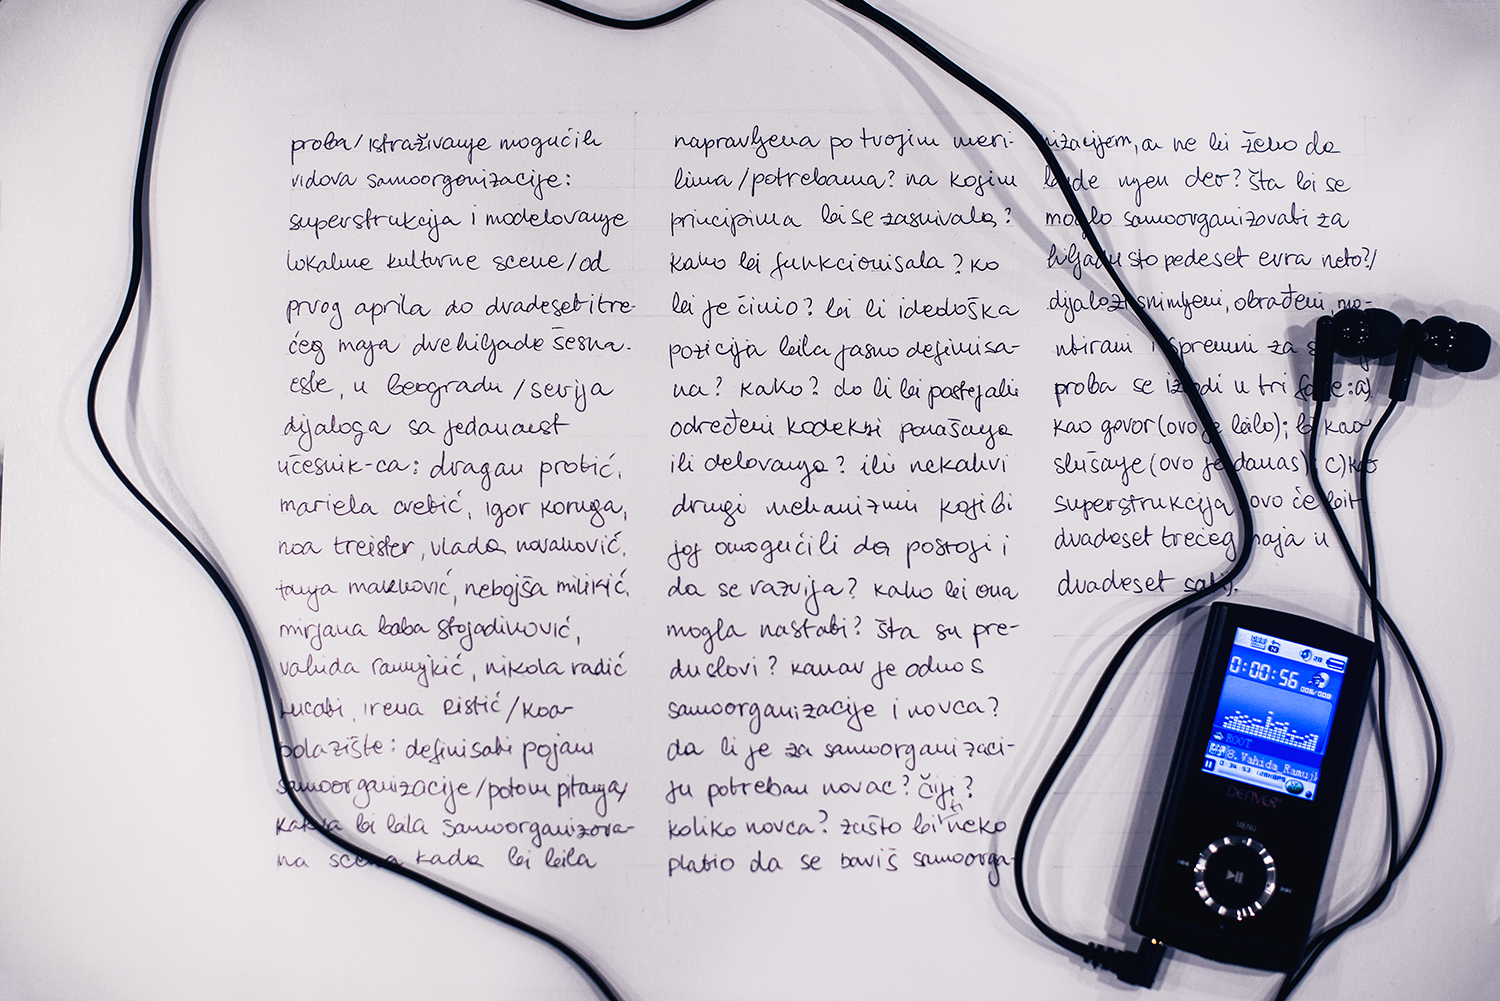 proba/istraživanje mogućih
vidova samoorgonizacije:
superstrukcija i modelovanje
lokalne kulturne scene/od
prvog aprila do dvadesetitre-
ćeg maja dvehiljade šesna-
este, u beogradu/serija
dijaloga sa jedanaest
učesnik-ca: dragan protić,
mariela cvetić, igor koruga,
noa treister, vlada novaković,
tanja marković, nebojša milikić,
mirjana baba stojadinović,
vahida ramujkić, nikola radić
lucati, irena ristić/kao
polazište: definisati pojam
samoorganizacije/potom pitanja/
kakva bi bila samoorganizova-
na scena kada bi bila
napravljena po tvojim meri-
lima/potrebama? na kojim
principima bi se zasnivala?
kako bi funkcionisala? ko
bi je činio? bi li ideološka
pozicija bila jasno definisa-
na? kako? da li bi postojali
određeni kodeksi ponašanja
ili delovanja? ili nekakvi
drugi mehanizmi koji bi
joj omogućili da postoji i
da se razvija? kako bi ona
mogla nastati? šta su pre-
duslovi? kakav je odnos
samoorganizacije i novca?
da li je za samoorganizaci-
ju potreban novac? čiji?
koliko novca? zašto bi ti neko
platio da se baviš samoorga-
nizacijem, a ne bi želeo da
bude njen deo? šta bi se
moglo samoorganizovati za
hiljadu sto pedeset evra neto?/
dijalozi snimljeni, obrađeni, mo-
ntirani i spremni za
proba se izvodi u tri faze: a)
kao govor (ovo je bilo); b) kao
slušanje (ovo je danas); c) kao
superstrukcija (ovo će biti
dvadeset trećeg maja u
dvadeset sati).
0:00:56
008/008
ROOT
8. Vahida Ramujk
DENVER
MENU